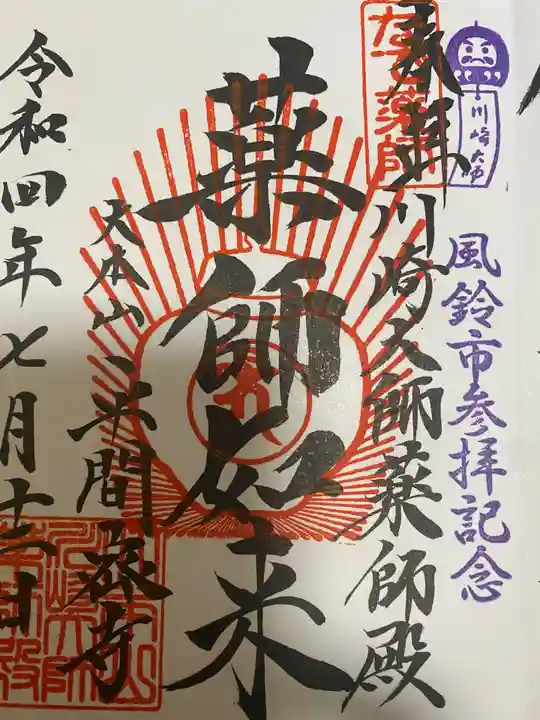 川崎大師
風鈴市参拝記念
奉拝
なで薬師
川崎大師薬師殿
薬師如来
大本山 平間寺
令和四年七月十六日